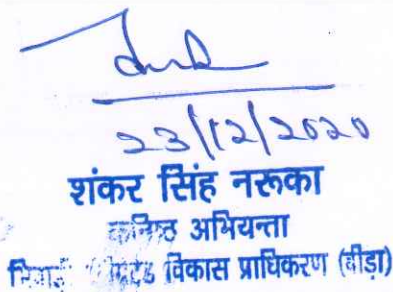 23/12/2020
शंकर सिंह नरूका
कनिष्ठ अभियन्ता
विकास प्राधिकरण (बीड़ा)